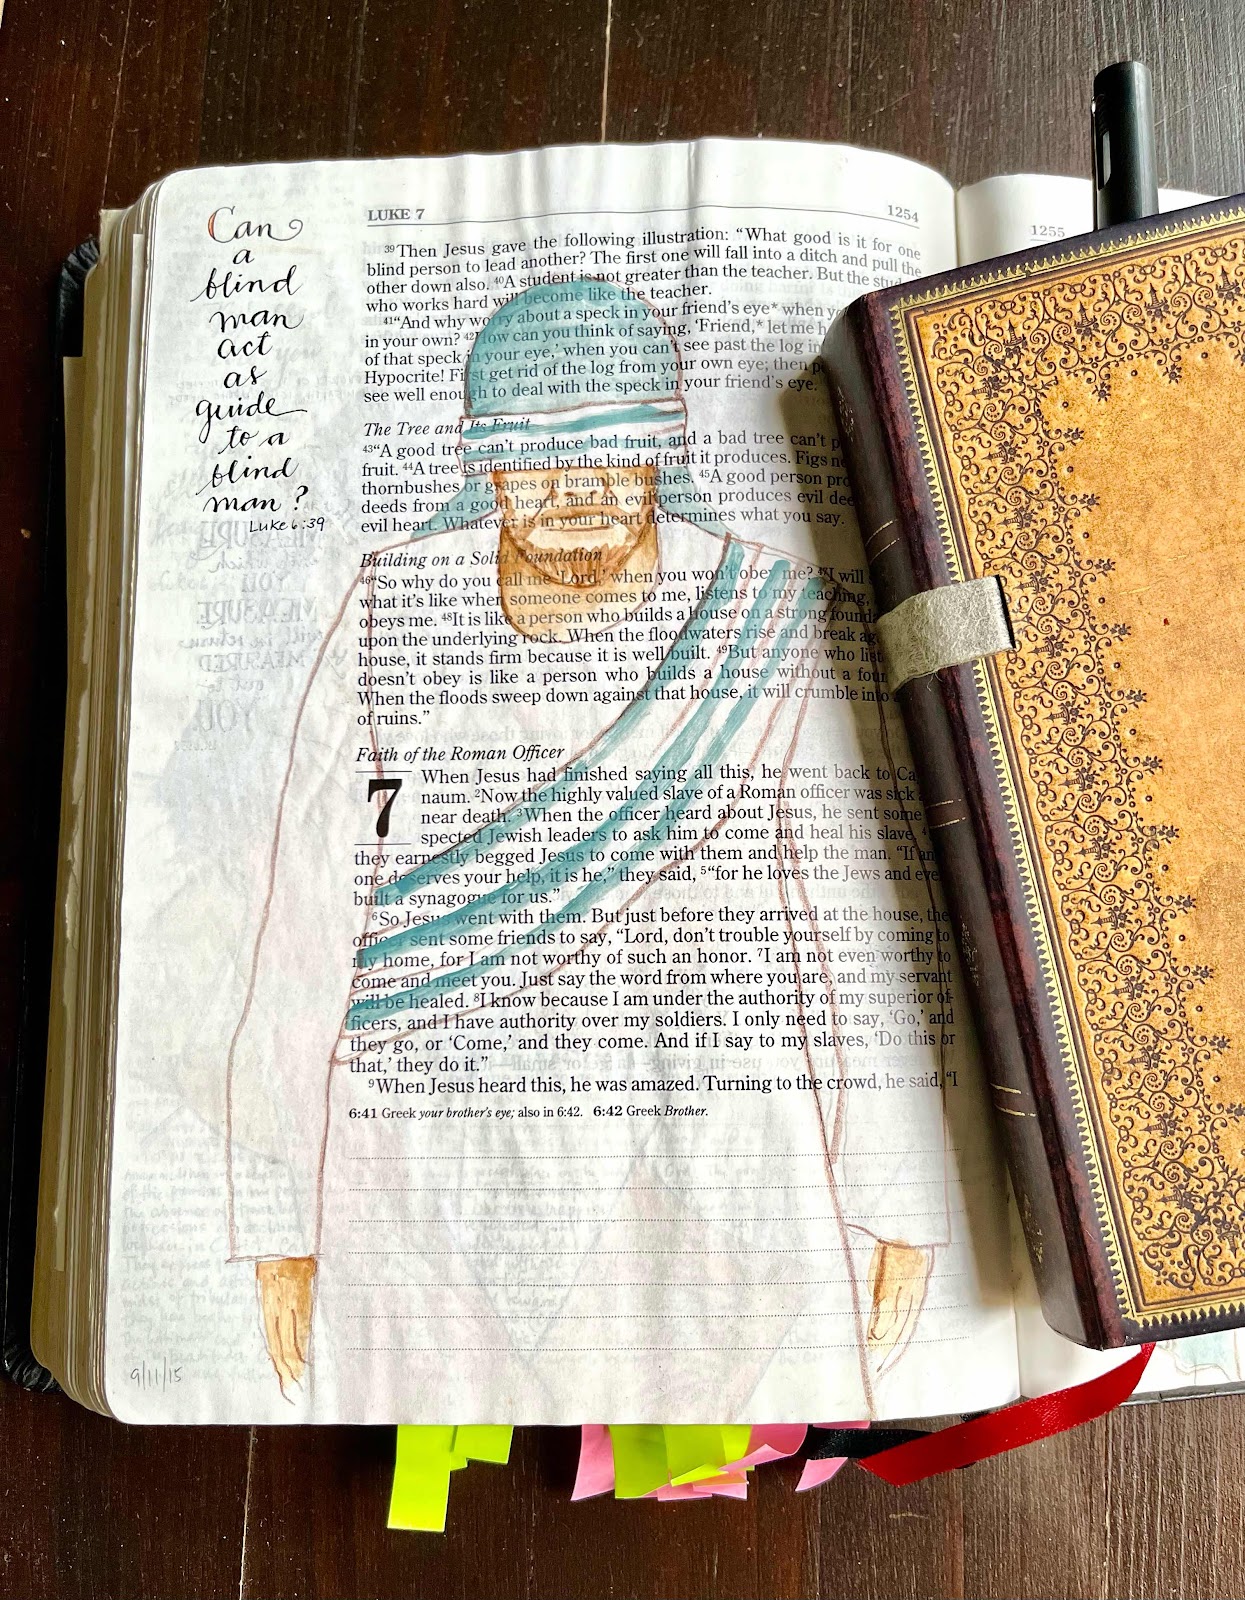 Can
a
blind
man
act
as
guide
to a
blind
man?
Luke 6:39
9/11/15
LUKE 7
1254
1255
39Then Jesus gave the following illustration: “What good is it for one
blind person to lead another? The first one will fall into a ditch and pull the
other down also. 40A student is not greater than the teacher. But the
who works hard will become like the teacher.
41“And why worry about a speck in your friend’s eye* when
in your own? 42How can you think of saying, ‘Friend,* let me
of that speck in your eye,’ when you can’t see past the log in
Hypocrite! First get rid of the log from your own eye; then
see well enough to deal with the speck in your friend’s eye.
The Tree and Its Fruit
43“A good tree can’t produce bad fruit, and a bad tree can’t
fruit. 44A tree is identified by the kind of fruit it produces. Figs
thornbushes or grapes on bramble bushes. 45A good person
deeds from a good heart, and an evil person produces evil
evil heart. Whatever is in your heart determines what you say.
Building on a Solid Foundation
46“So why do you call me ‘Lord,’ when you won’t obey me? 47I will
what it’s like when someone comes to me, listens to my teaching,
obeys me. 48It is like a person who builds a house on a strong
upon the underlying rock. When the floodwaters rise and break
house, it stands firm because it is well built. 49But anyone who
doesn’t obey is like a person who builds a house without a
When the floods sweep down against that house, it will crumble
of ruins.”
Faith of the Roman Officer
7 When Jesus had finished saying all this, he went back to
naum. 2Now the highly valued slave of a Roman officer was sick
near death. 3When the officer heard about Jesus, he sent some
spected Jewish leaders to ask him to come and heal his slave.
they earnestly begged Jesus to come with them and help the man. “If
one deserves your help, it is he,” they said, 5“for he loves the Jews and
built a synagogue for us.”
6So Jesus went with them. But just before they arrived at the house, the
officer sent some friends to say, “Lord, don’t trouble yourself by coming to
my home, for I am not worthy of such an honor. 7I am not even worthy to
come and meet you. Just say the word from where you are, and my servant
will be healed. 8I know because I am under the authority of my superior of-
ficers, and I have authority over my soldiers. I only need to say, ‘Go,’ and
they go, or ‘Come,’ and they come. And if I say to my slaves, ‘Do this or
that,’ they do it.”
9When Jesus heard this, he was amazed. Turning to the crowd, he said, “I
6:41 Greek your brother’s eye; also in 6:42. 6:42 Greek Brother.